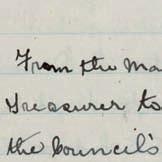 From the Ma
Treasurer to
the Council's